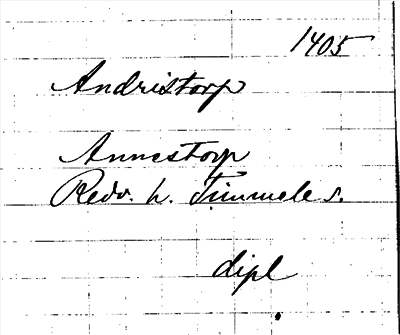 1405
Andristorp
Annestorp
Redv. h. Timmele s.
dipl